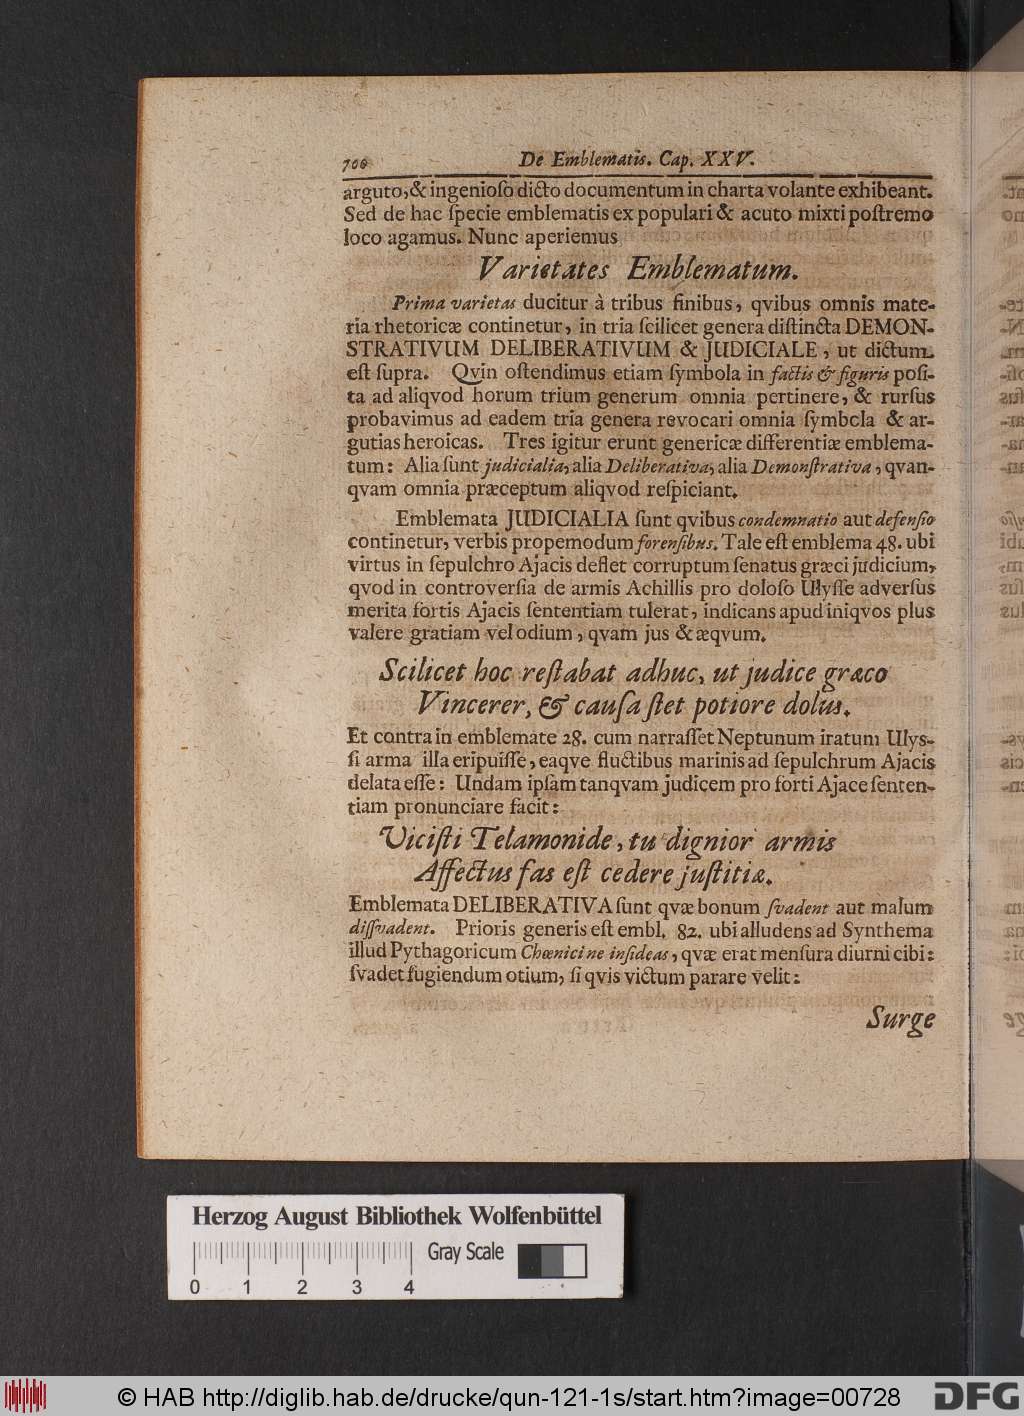 700 De Emblematis. Cap. XXV.
arguto, & ingenioſo dicto documentum in charta volante exhibeant.
Sed de hac ſpecie emblematis ex populari & acuto mixti poſtremo
loco agamus. Nunc aperiemus
Varietates Emblematum.
Prima varietas ducitur à tribus finibus, qvibus omnis mate-
ria rhetoricæ continetur, in tria ſcilicet genera diſtincta DEMON-
STRATIVUM DELIBERATIVUM & JUDICIALE, ut dictum
eſt ſupra. Qvin oſtendimus etiam ſymbola in factis & figuris poſi-
ta ad aliqvod horum trium generum omnia pertinere, & rurſus
probavimus ad eadem tria genera revocari omnia ſymbola & ar-
gutias heroicas. Tres igitur erunt genericæ differentiæ emblema-
tum: Alia ſunt judicialia, alia Deliberativa, alia Demonſtrativa, qvan-
qvam omnia præceptum aliqvod reſpiciant.
Emblemata JUDICIALIA ſunt qvibus condemnatio aut defenſio
continetur, verbis propemodum forenſibus. Tale eſt emblema 48. ubi
virtus in ſepulchro Ajacis deflet corruptum ſenatus græci judicium,
qvod in controverſia de armis Achillis pro doloſo Ulyſſe adverſus
merita fortis Ajacis ſententiam tulerat, indicans apud iniqvos plus
valere gratiam vel odium, qvam jus & æqvum.
Scilicet hoc reſtabat adhuc, ut judice græco
Vincerer, & cauſa ſtet potiore dolus.
Et contra in emblemate 28. cum narraſſet Neptunum iratum Ulyſ-
ſi arma illa eripuiſſe, eaqve fluctibus marinis ad ſepulchrum Ajacis
delata eſſe: Undam ipſam tanqvam judicem pro forti Ajace ſenten-
tiam pronunciare facit:
Viciſti Telamonide, tu dignior armis
Affectus fas eſt cedere juſtitiæ.
Emblemata DELIBERATIVA ſunt qvæ bonum ſvadent aut malum
diſſvadent. Prioris generis eſt embl. 82. ubi alludens ad Synthema
illud Pythagoricum Chœnici ne inſideas, qvæ erat menſura diurni cibi:
ſvadet fugiendum otium, ſi qvis victum parare velit:
Surge
Herzog August Bibliothek Wolfenbüttel
Gray Scale
0 1 2 3 4
© HAB http://diglib.hab.de/drucke/qun-121-1s/start.htm?image=00728
DFG